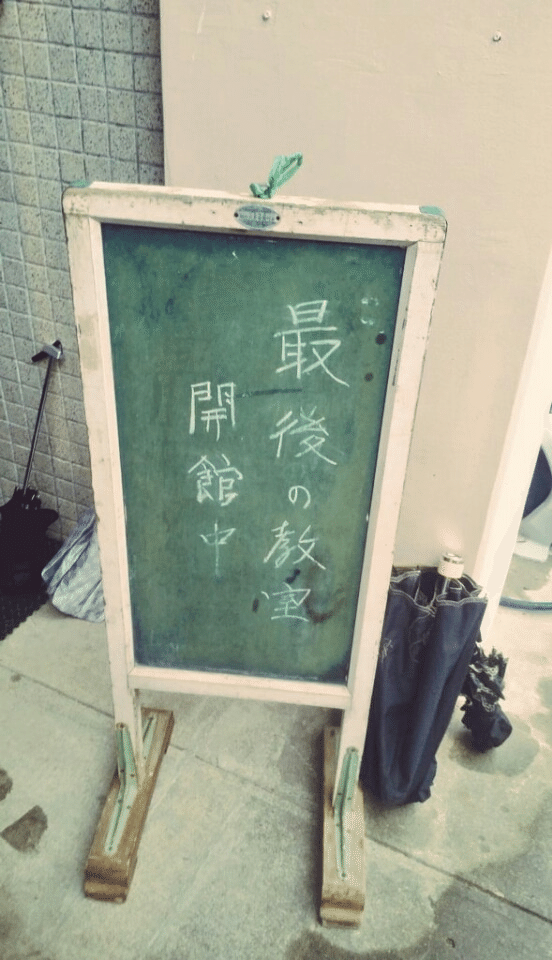 最後の教室
開館中